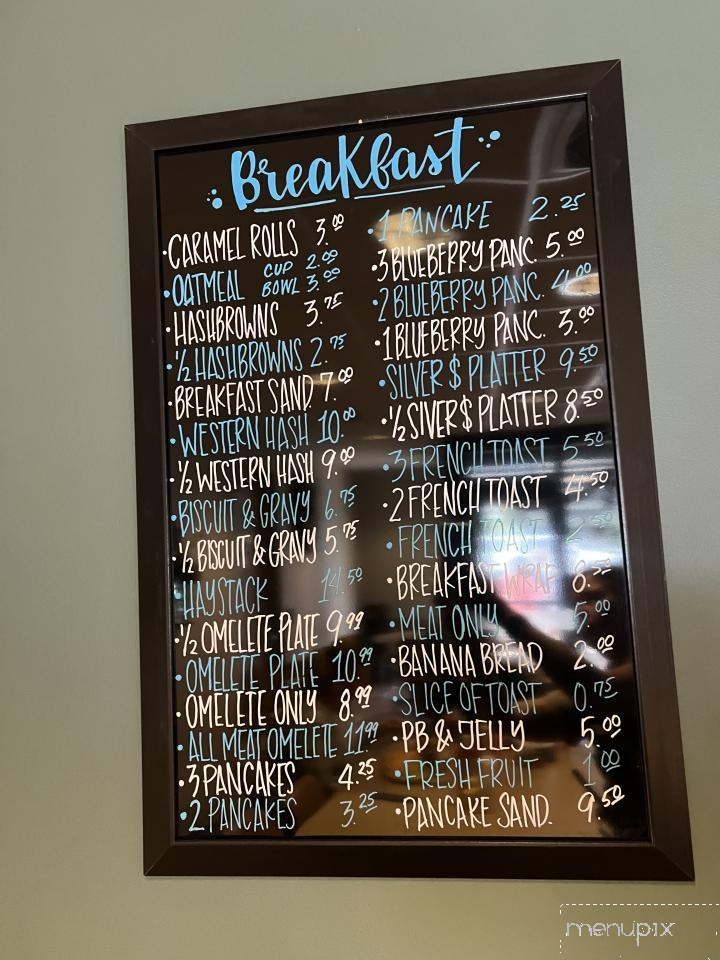 Breakfast
•CARAMEL ROLLS 3.00
•OATMEAL CUP 2.00
BOWL 3.00
•HASHBROWNS 3.75
•½ HASHBROWNS 2.75
•BREAKFAST SAND. 7.00
•WESTERN HASH 10.00
•½ WESTERN HASH 9.00
•BISCUIT & GRAVY 6.75
•½ BISCUIT & GRAVY 5.75
•HAYSTACK 14.50
•½ OMELETE PLATE 9.99
•OMELETE PLATE 10.99
•OMELETE ONLY 8.99
•ALL MEAT OMELETE 11.99
•3 PANCAKES 4.25
•2 PANCAKES 3.25
•1 PANCAKE 2.25
•3 BLUEBERRY PANC. 5.00
•2 BLUEBERRY PANC. 4.00
•1 BLUEBERRY PANC. 3.00
•SILVER $ PLATTER 9.50
•½ SIVER $ PLATTER 8.50
•3 FRENCH TOAST 5.50
•2 FRENCH TOAST 4.50
•FRENCH TOAST
•BREAKFAST WRAP
•MEAT ONLY 5.00
•BANANA BREAD 2.00
•SLICE OF TOAST 0.75
•PB & JELLY 5.00
•FRESH FRUIT 1.00
•PANCAKE SAND. 9.50
menupix